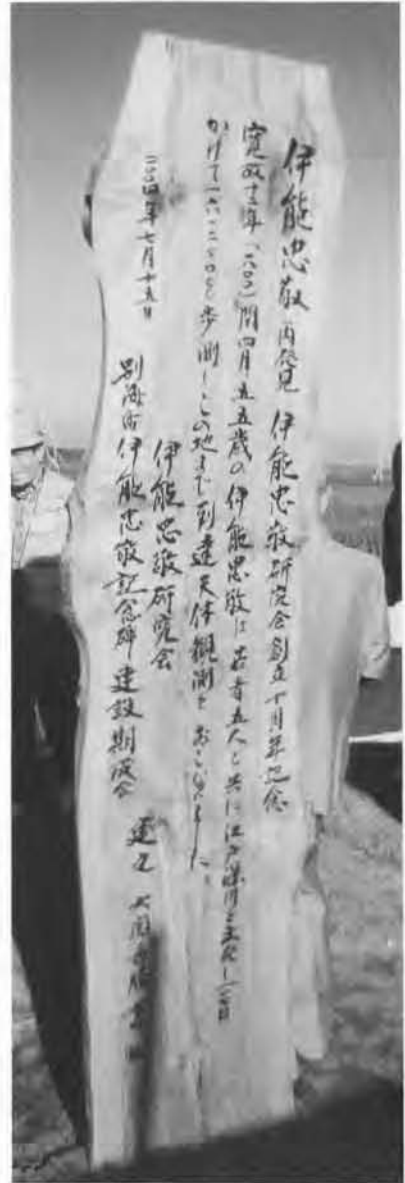 伊能忠敬再発見 伊能忠敬研究会創立十周年記念
寛政十二年(一八〇〇)閏四月、五五歳の伊能忠敬は若者五人と共に江戸深川を出発し
かけて一六〇〇キロを歩測しこの地まで到達天体観測をおこないました。
二〇〇四年七月十五日
伊能忠敬研究会
別海町伊能忠敬記念碑建設期成会